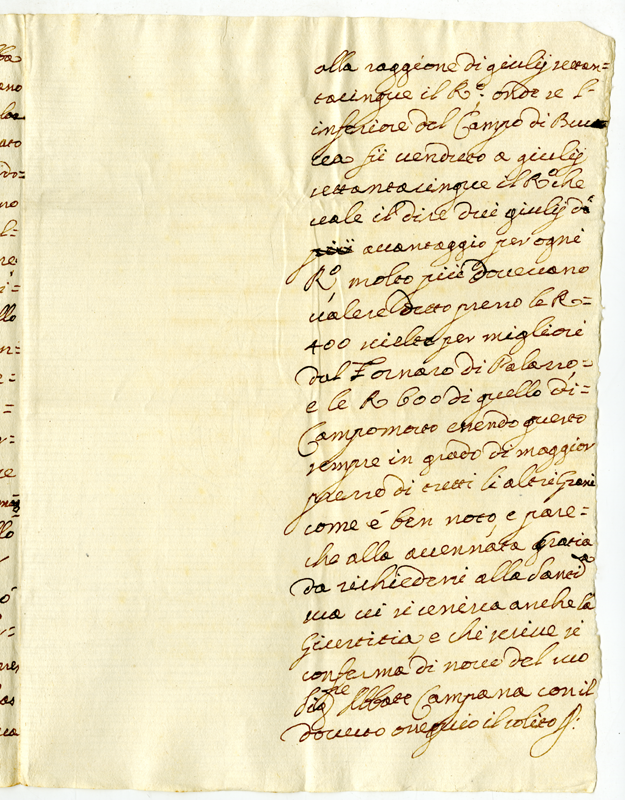 alla raggione di giulij settan=
tacinque il R.º: onde se l'
inferiore del Campo di Buc
cea fù venduto a giulij
settantacinque il R.º che
uale il dire due giulij di
auantaggio per ogni
R.º molto più doueuano
ualere detto prezzo le R=
400 scielte per migliori
dal Fornaro di Palazzo=
e le R 600 di quello di=
Campomorto essendo questo
sempre in grado di maggior
prezzo di tutti li altri Grani
come é ben noto, e pare=
che alla accennata gratia
da richiedersi alla Santità
sua ui si unisca anche la
Giustitia, e chi scriue si
conferma di nouo del suo
Sig.re Abbate Campana con il
douuto ossequio il solito